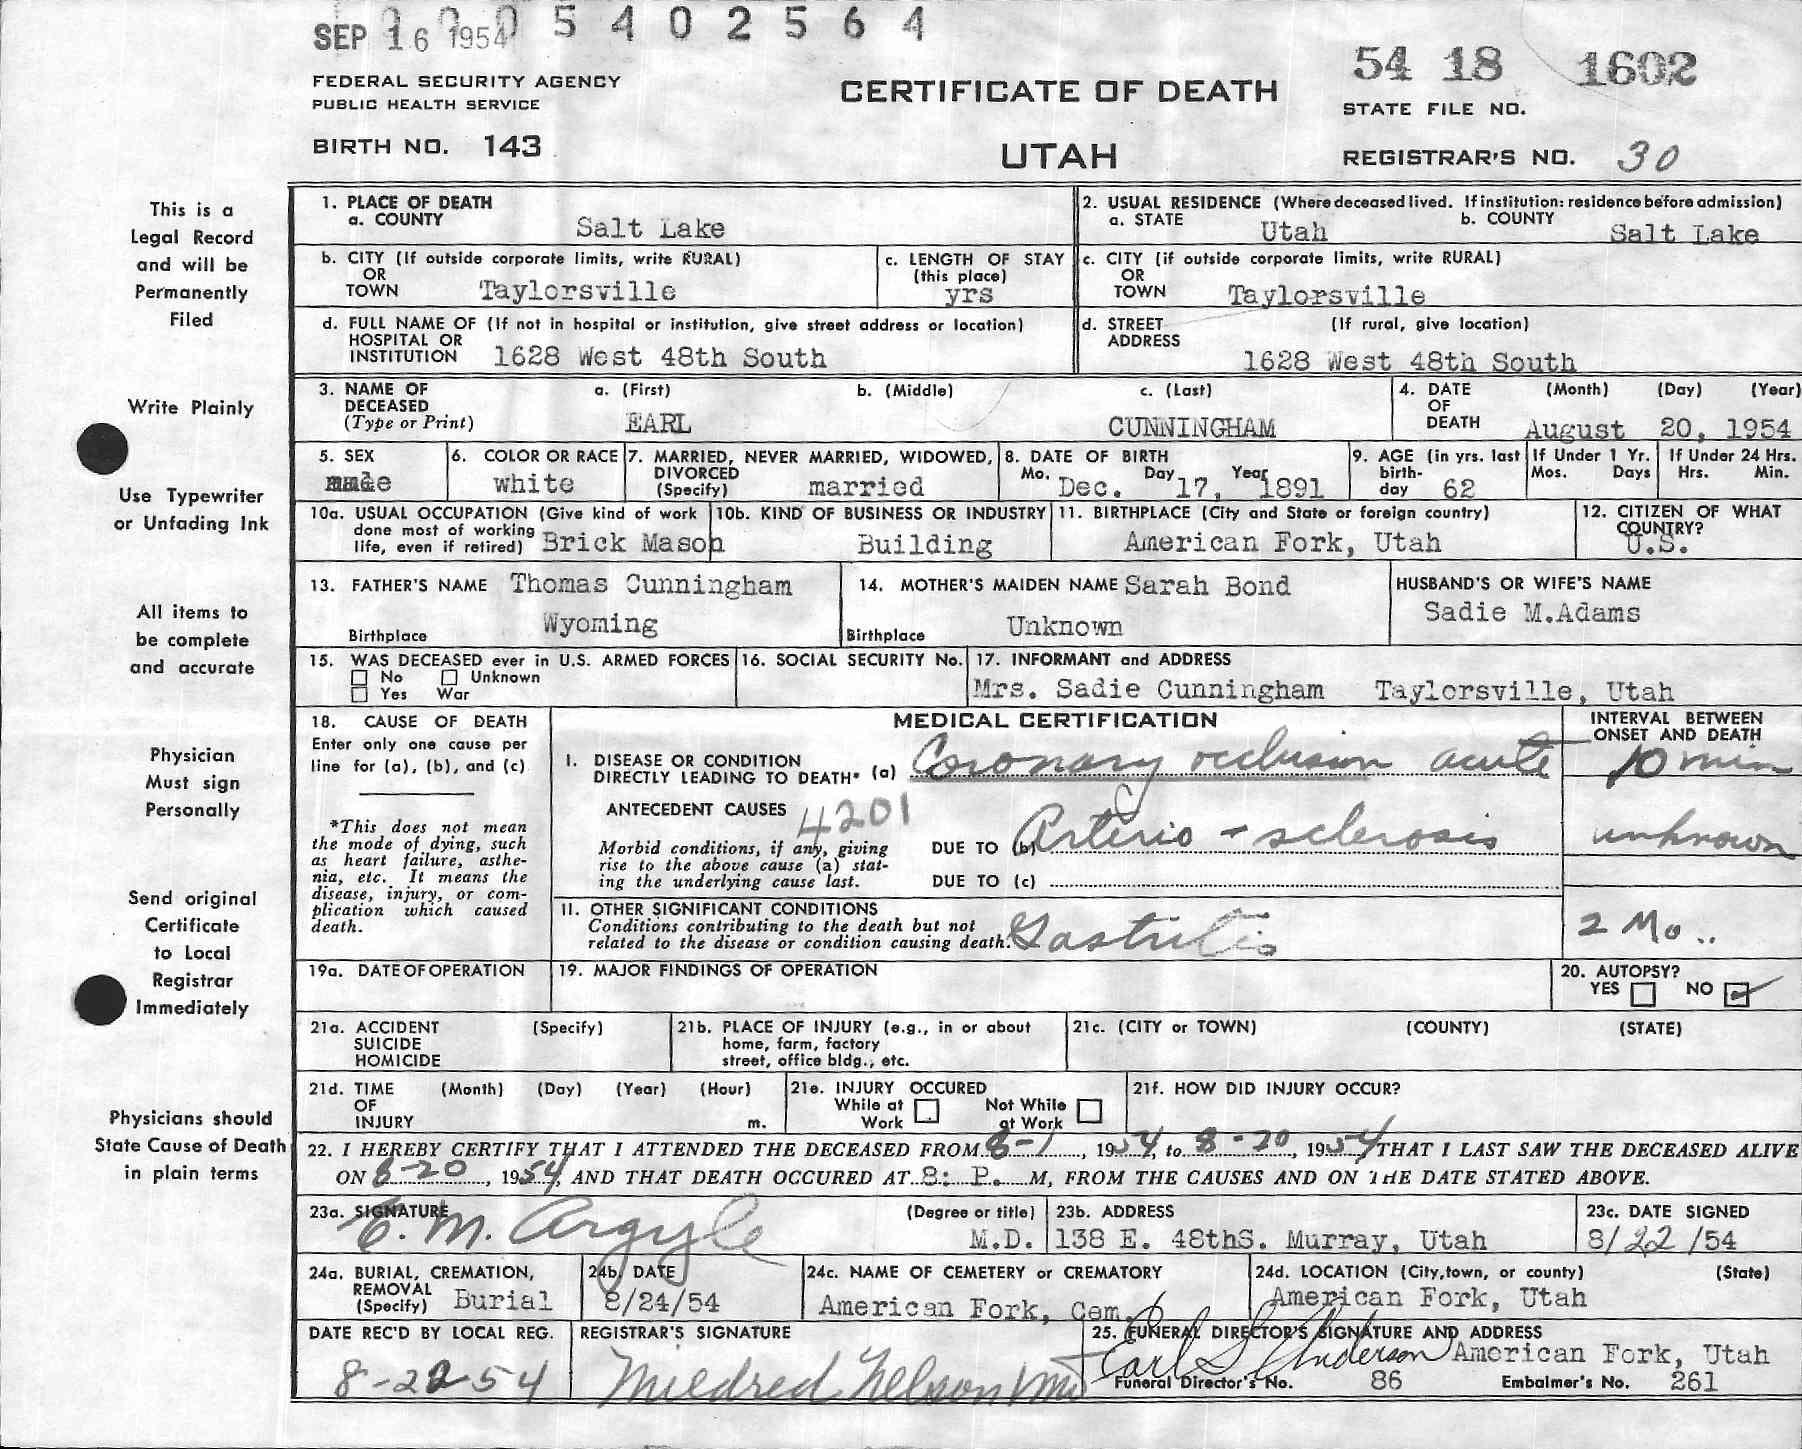 0005402564
SEP 16 1954
54 18 1602
FEDERAL SECURITY AGENCY
PUBLIC HEALTH SERVICE
CERTIFICATE OF DEATH
STATE FILE NO.
BIRTH NO. 143
UTAH
REGISTRAR'S NO. 30
This is a
Legal Record
and will be
Permanently
Filed
Write Plainly
Use Typewriter
or Unfading Ink
All items to
be complete
and accurate
Physician
Must sign
Personally
Send original
Certificate
to Local
Registrar
Immediately
Physicians should
State Cause of Death
in plain terms
1. PLACE OF DEATH
a. COUNTY Salt Lake
2. USUAL RESIDENCE (Where deceased lived. If institution: residence before admission)
a. STATE Utah b. COUNTY Salt Lake
b. CITY (If outside corporate limits, write RURAL)
OR
TOWN Taylorsville
c. LENGTH OF STAY
(this place)
yrs
c. CITY (if outside corporate limits, write RURAL)
OR
TOWN Taylorsville
d. FULL NAME OF (If not in hospital or institution, give street address or location)
HOSPITAL OR
INSTITUTION 1628 West 48th South
d. STREET (If rural, give location)
ADDRESS
1628 West 48th South
3. NAME OF DECEASED
(Type or Print)
a. (First) b. (Middle) c. (Last)
EARL CUNNINGHAM
4. DATE OF DEATH (Month) (Day) (Year)
August 20, 1954
5. SEX
male
6. COLOR OR RACE
white
7. MARRIED, NEVER MARRIED, WIDOWED,
DIVORCED
(Specify) married
8. DATE OF BIRTH
Mo. Dec. Day 17, Year 1891
9. AGE (in yrs. last
birth-
day 62
If Under 1 Yr.
Mos. Days
If Under 24 Hrs.
Hrs. Min.
10a. USUAL OCCUPATION (Give kind of work
done most of working
life, even if retired) Brick Mason
10b. KIND OF BUSINESS OR INDUSTRY
Building
11. BIRTHPLACE (City and State or foreign country)
American Fork, Utah
12. CITIZEN OF WHAT
COUNTRY?
U.S.
13. FATHER'S NAME Thomas Cunningham
Birthplace Wyoming
14. MOTHER'S MAIDEN NAME Sarah Bond
Birthplace Unknown
HUSBAND'S OR WIFE'S NAME
Sadie M.Adams
15. WAS DECEASED ever in U.S. ARMED FORCES
No Unknown
Yes War
16. SOCIAL SECURITY No.
17. INFORMANT and ADDRESS
Mrs. Sadie Cunningham Taylorsville, Utah
18. CAUSE OF DEATH
Enter only one cause per
line for (a), (b), and (c)
*This does not mean
the mode of dying, such
as heart failure, asthe-
nia, etc. It means the
disease, injury, or com-
plication which caused
death.
MEDICAL CERTIFICATION
INTERVAL BETWEEN
ONSET AND DEATH
I. DISEASE OR CONDITION
DIRECTLY LEADING TO DEATH* (a) Coronary occlusion acute 10 min
ANTECEDENT CAUSES 4201
Morbid conditions, if any, giving
rise to the above cause (a) stat-
ing the underlying cause last.
DUE TO (b) Arterio-sclerosis unknown
DUE TO (c)
II. OTHER SIGNIFICANT CONDITIONS
Conditions contributing to the death but not
related to the disease or condition causing death. Gastritis 2 Mo..
19a. DATE OF OPERATION
19. MAJOR FINDINGS OF OPERATION
20. AUTOPSY?
YES NO ✓
21a. ACCIDENT (Specify)
SUICIDE
HOMICIDE
21b. PLACE OF INJURY (e.g., in or about
home, farm, factory
street, office bldg., etc.
21c. (CITY or TOWN) (COUNTY) (STATE)
21d. TIME (Month) (Day) (Year) (Hour)
OF
INJURY m.
21e. INJURY OCCURED
While at Work Not While at Work
21f. HOW DID INJURY OCCUR?
22. I HEREBY CERTIFY THAT I ATTENDED THE DECEASED FROM 8-1, 1954, to 8-20, 1954 THAT I LAST SAW THE DECEASED ALIVE
ON 8-20, 1954, AND THAT DEATH OCCURED AT 8: P. M, FROM THE CAUSES AND ON THE DATE STATED ABOVE.
23a. SIGNATURE (Degree or title)
E. M. Argyle M.D.
23b. ADDRESS
138 E. 48thS. Murray, Utah
23c. DATE SIGNED
8/22/54
24a. BURIAL, CREMATION,
REMOVAL
(Specify) Burial
24b. DATE
8/24/54
24c. NAME OF CEMETERY or CREMATORY
American Fork, Cem.
24d. LOCATION (City,town, or county) (State)
American Fork, Utah
DATE REC'D BY LOCAL REG.
8-22-54
REGISTRAR'S SIGNATURE
Mildred Nelson
25. FUNERAL DIRECTOR'S SIGNATURE AND ADDRESS
Earl S Anderson American Fork, Utah
Funeral Director's No. 86 Embalmer's No. 261